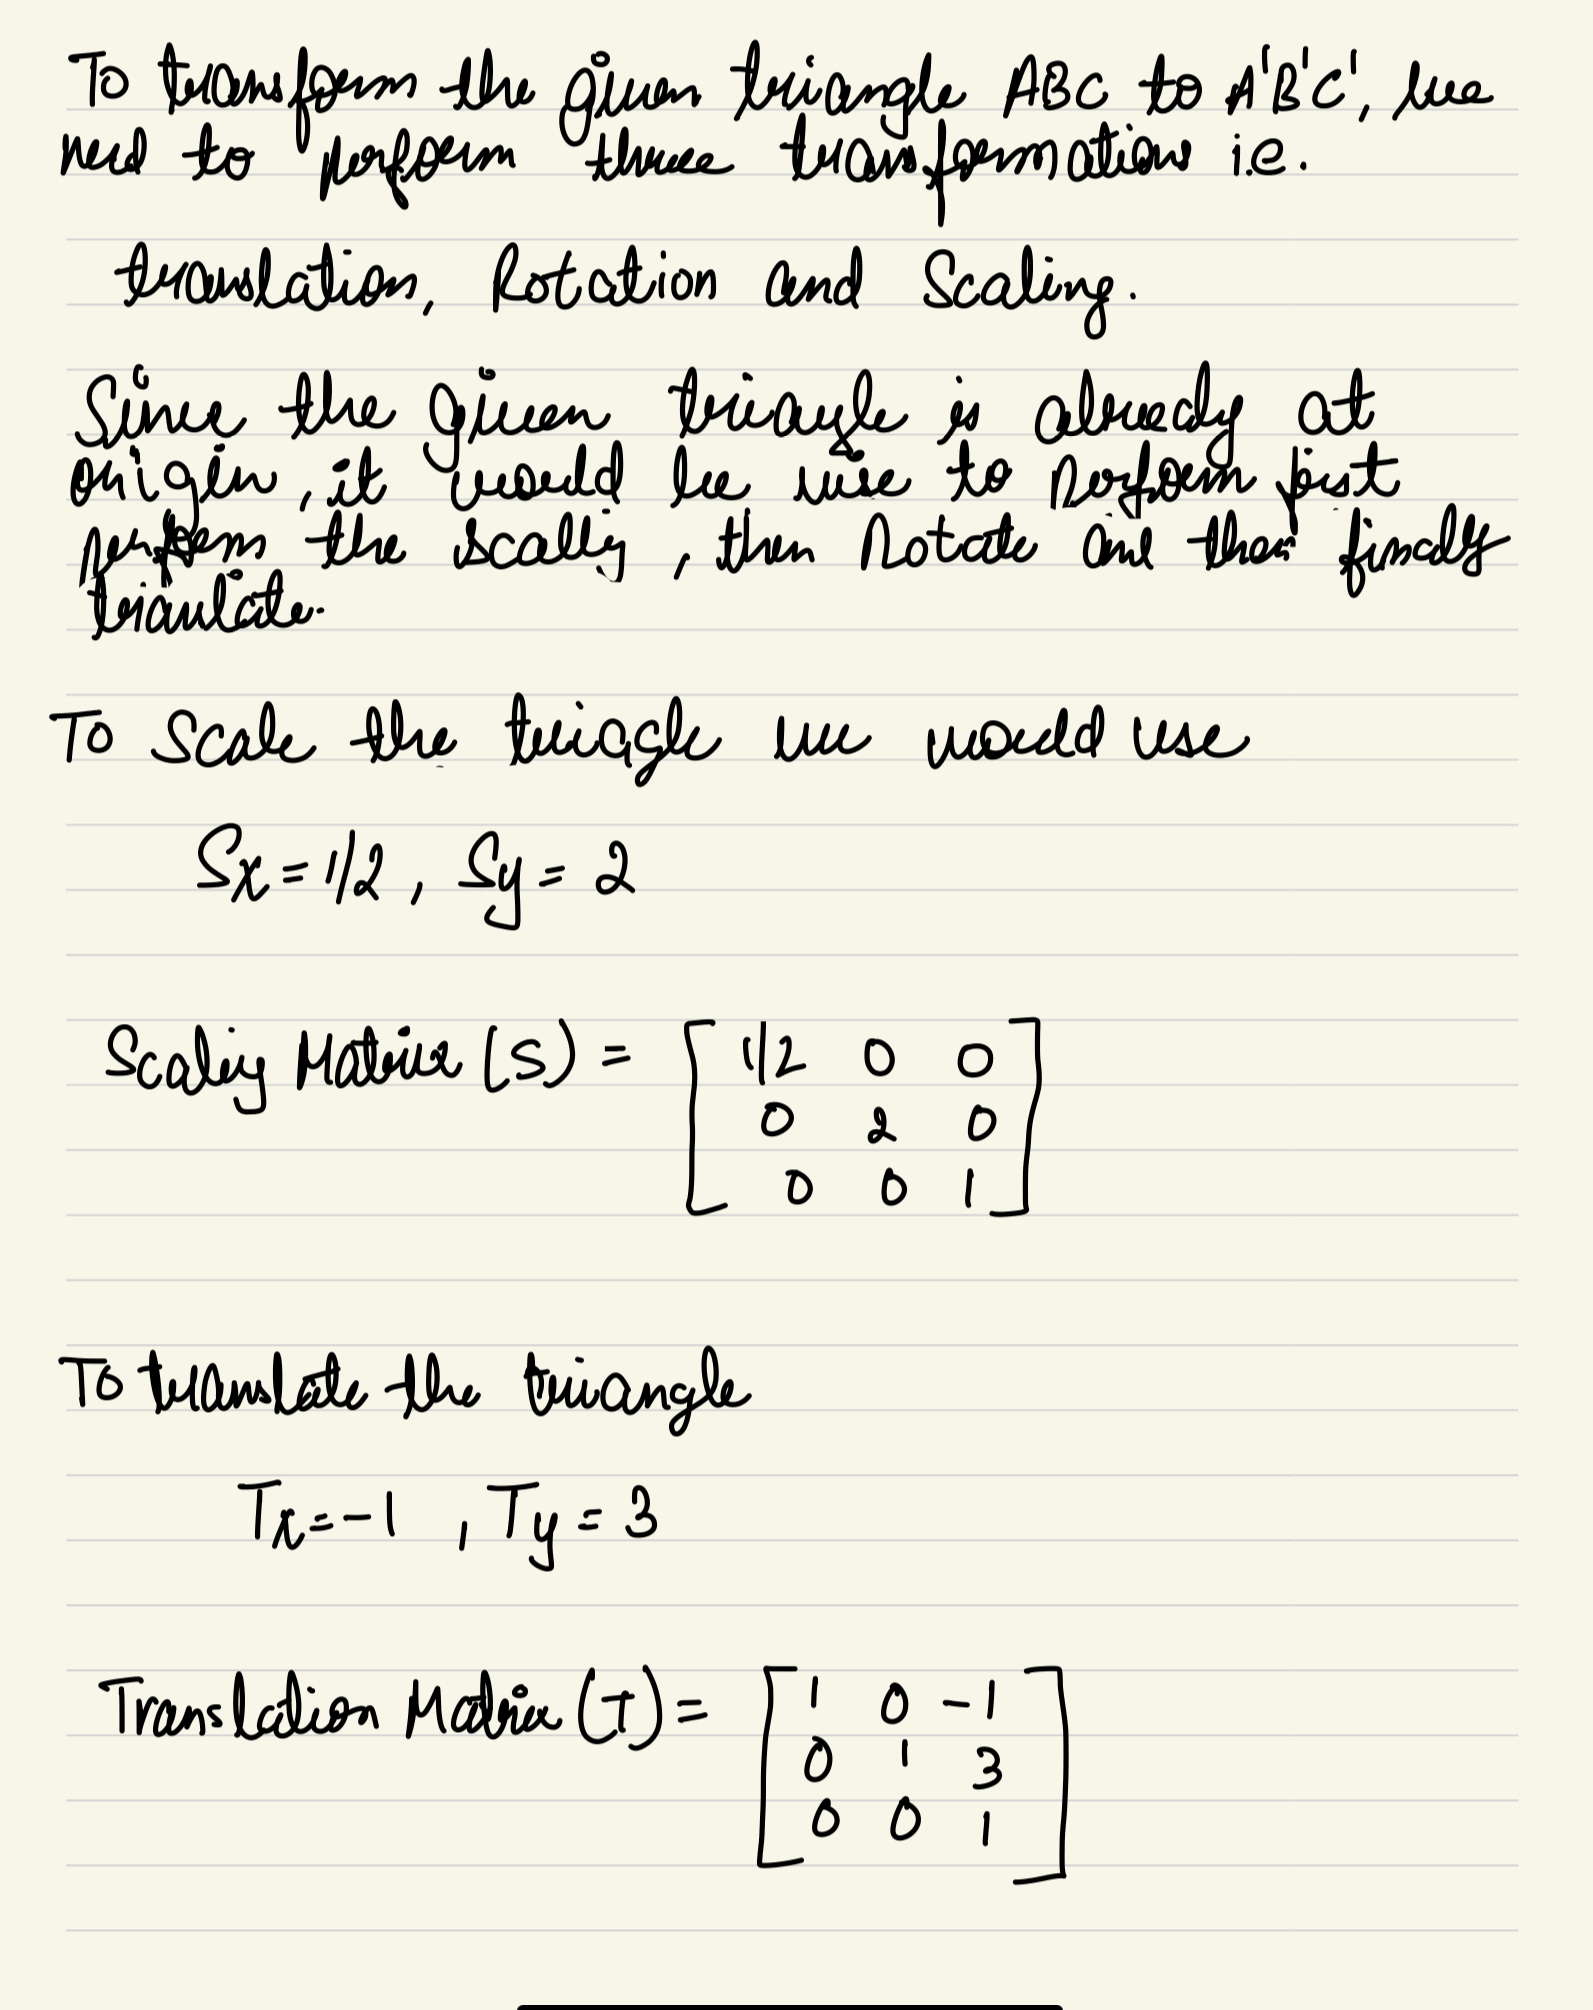 To transform the given triangle ABC to A'B'C', we
need to perform three transformations i.e.
translation, Rotation and Scaling.
Since the given triangle is already at
origin, it would be wise to perform just
perform the scaling, then Rotate and then finally
translate.
To Scale the triagle we would use
Sx = 1/2, Sy = 2
Scaling Matrix (S) = [ 1/2 0 0
0 2 0
0 0 1 ]
To translate the triangle
Tx = -1 , Ty = 3
Translation Matrix (T) = [ 1 0 -1
0 1 3
0 0 1 ]